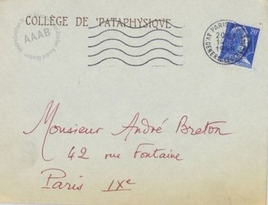 COLLÈGE DE 'PATAPHYSIQUE
AAAB
PARIS
Monsieur André Breton
42 rue Fontaine
Paris IXe